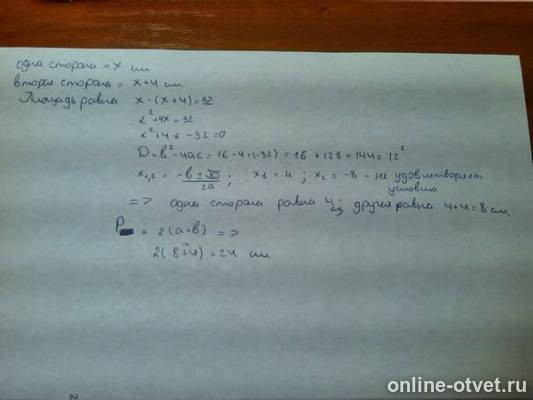 одна сторона = x см
вторая сторона = x+4 см
Площадь равна x·(x+4)=32
x²+4x=32
x²+4x-32=0
D=b²-4ac=16-4·(-32)=16+128=144=12²
x₁,₂ = -b±√D/2a ; x₁=4 ; x₂=-8 - не удовлетворяет
условию
=> одна сторона равна 4 см другая равна 4+4=8 см.
P = 2(a+b) =>
2(8+4)=24 см
2
online-otvet.ru